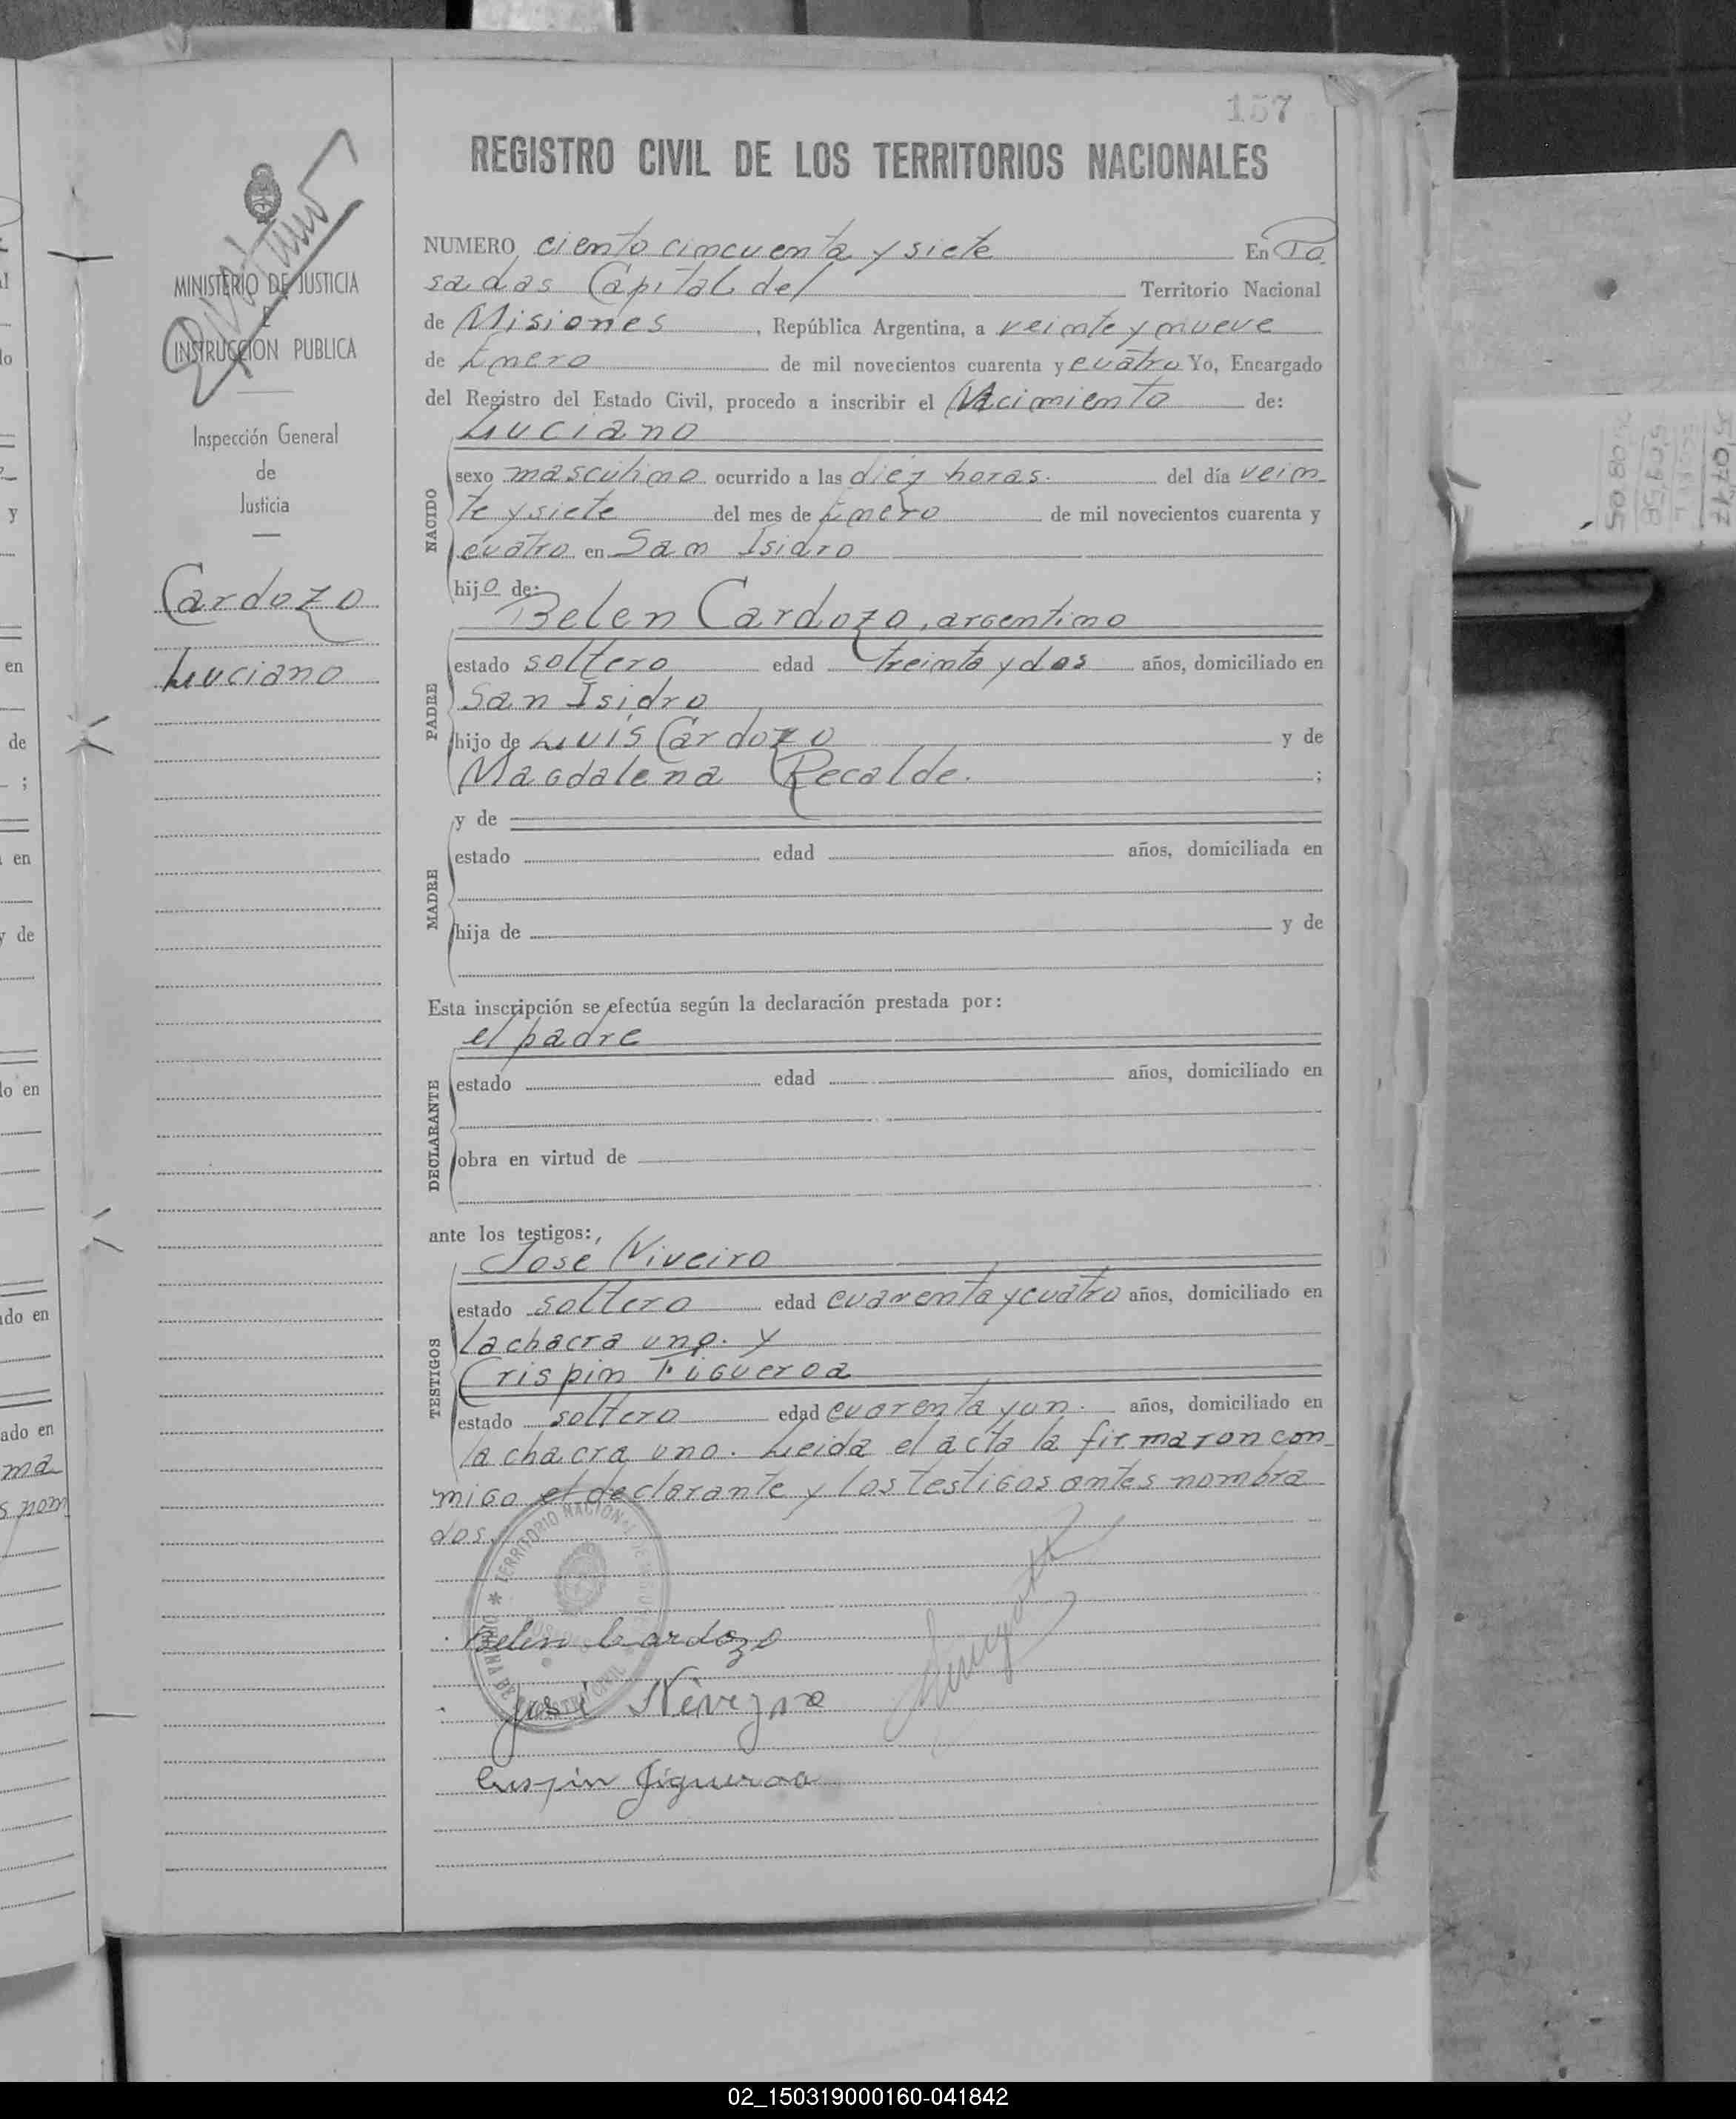 157
REGISTRO CIVIL DE LOS TERRITORIOS NACIONALES
MINISTERIO DE JUSTICIA
E
INSTRUCCION PUBLICA
Inspección General
de
Justicia
Cardozo
Luciano
NUMERO ciento cincuenta y siete En Po
sadas Capital del Territorio Nacional
de Misiones, República Argentina, a veinte y nueve
de Enero de mil novecientos cuarenta y cuatro Yo, Encargado
del Registro del Estado Civil, procedo a inscribir el Nacimiento de:
Luciano
NACIDO
sexo masculino ocurrido a las diez horas. del día vein
te y siete del mes de Enero de mil novecientos cuarenta y
cuatro en San Isidro
hijo de:
Belen Cardozo, argentino
PADRE
estado soltero edad treinta y dos años, domiciliado en
San Isidro
hijo de Luis Cardozo y de
Magdalena Recalde. ;
MADRE
y de
estado edad años, domiciliada en
hija de y de
Esta inscripción se efectúa según la declaración prestada por:
el padre
DECLARANTE
estado edad años, domiciliado en
obra en virtud de
ante los testigos:
Jose Niveiro
TESTIGOS
estado soltero edad cuarenta y cuatro años, domiciliado en
la chacra uno. y
Crispin Figueroa
estado soltero edad cuarenta y un. años, domiciliado en
la chacra uno. Leida el acta la firmaron con
migo el declarante y los testigos antes nombra
dos.
TERRITORIO NACIONAL DE
Belen Cardozo
José
Crispin Figueroa
50747
50958
50805
02_150319000160-041842